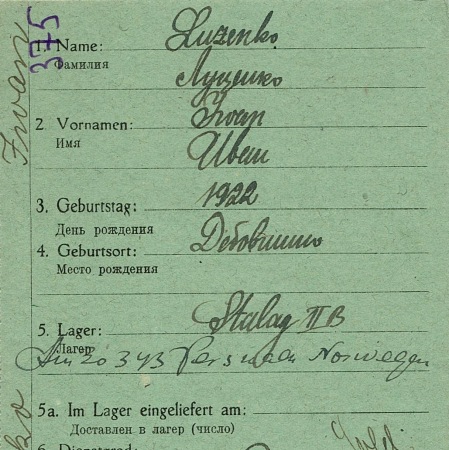 Iwan
375
1. Name: Luzenko
Фамилия
Луценко
2 Vornamen: Iwan
Имя
Иван
3. Geburtstag: 1922
День рождения
4. Geburtsort:
Место рождения
5. Lager: Stalag II B
Лагерь
343 nach Norwegen
5a. Im Lager eingeliefert am:
Доставлен в лагерь (число)
6. Dienstgrad: